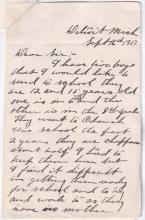 Detroit - Mich
Sept 16th 1917
Dear Sir:-
I have two boys
that I would like to
send to school they
are 12 and 15 years old
one is in 6 and the
other is in the 8th grade
They went to
school the past
2 years they are chippewa
about half. I had to
keep them here but
I find it difficult
in getting them ready
for school and to try
and work to as they
have no mother